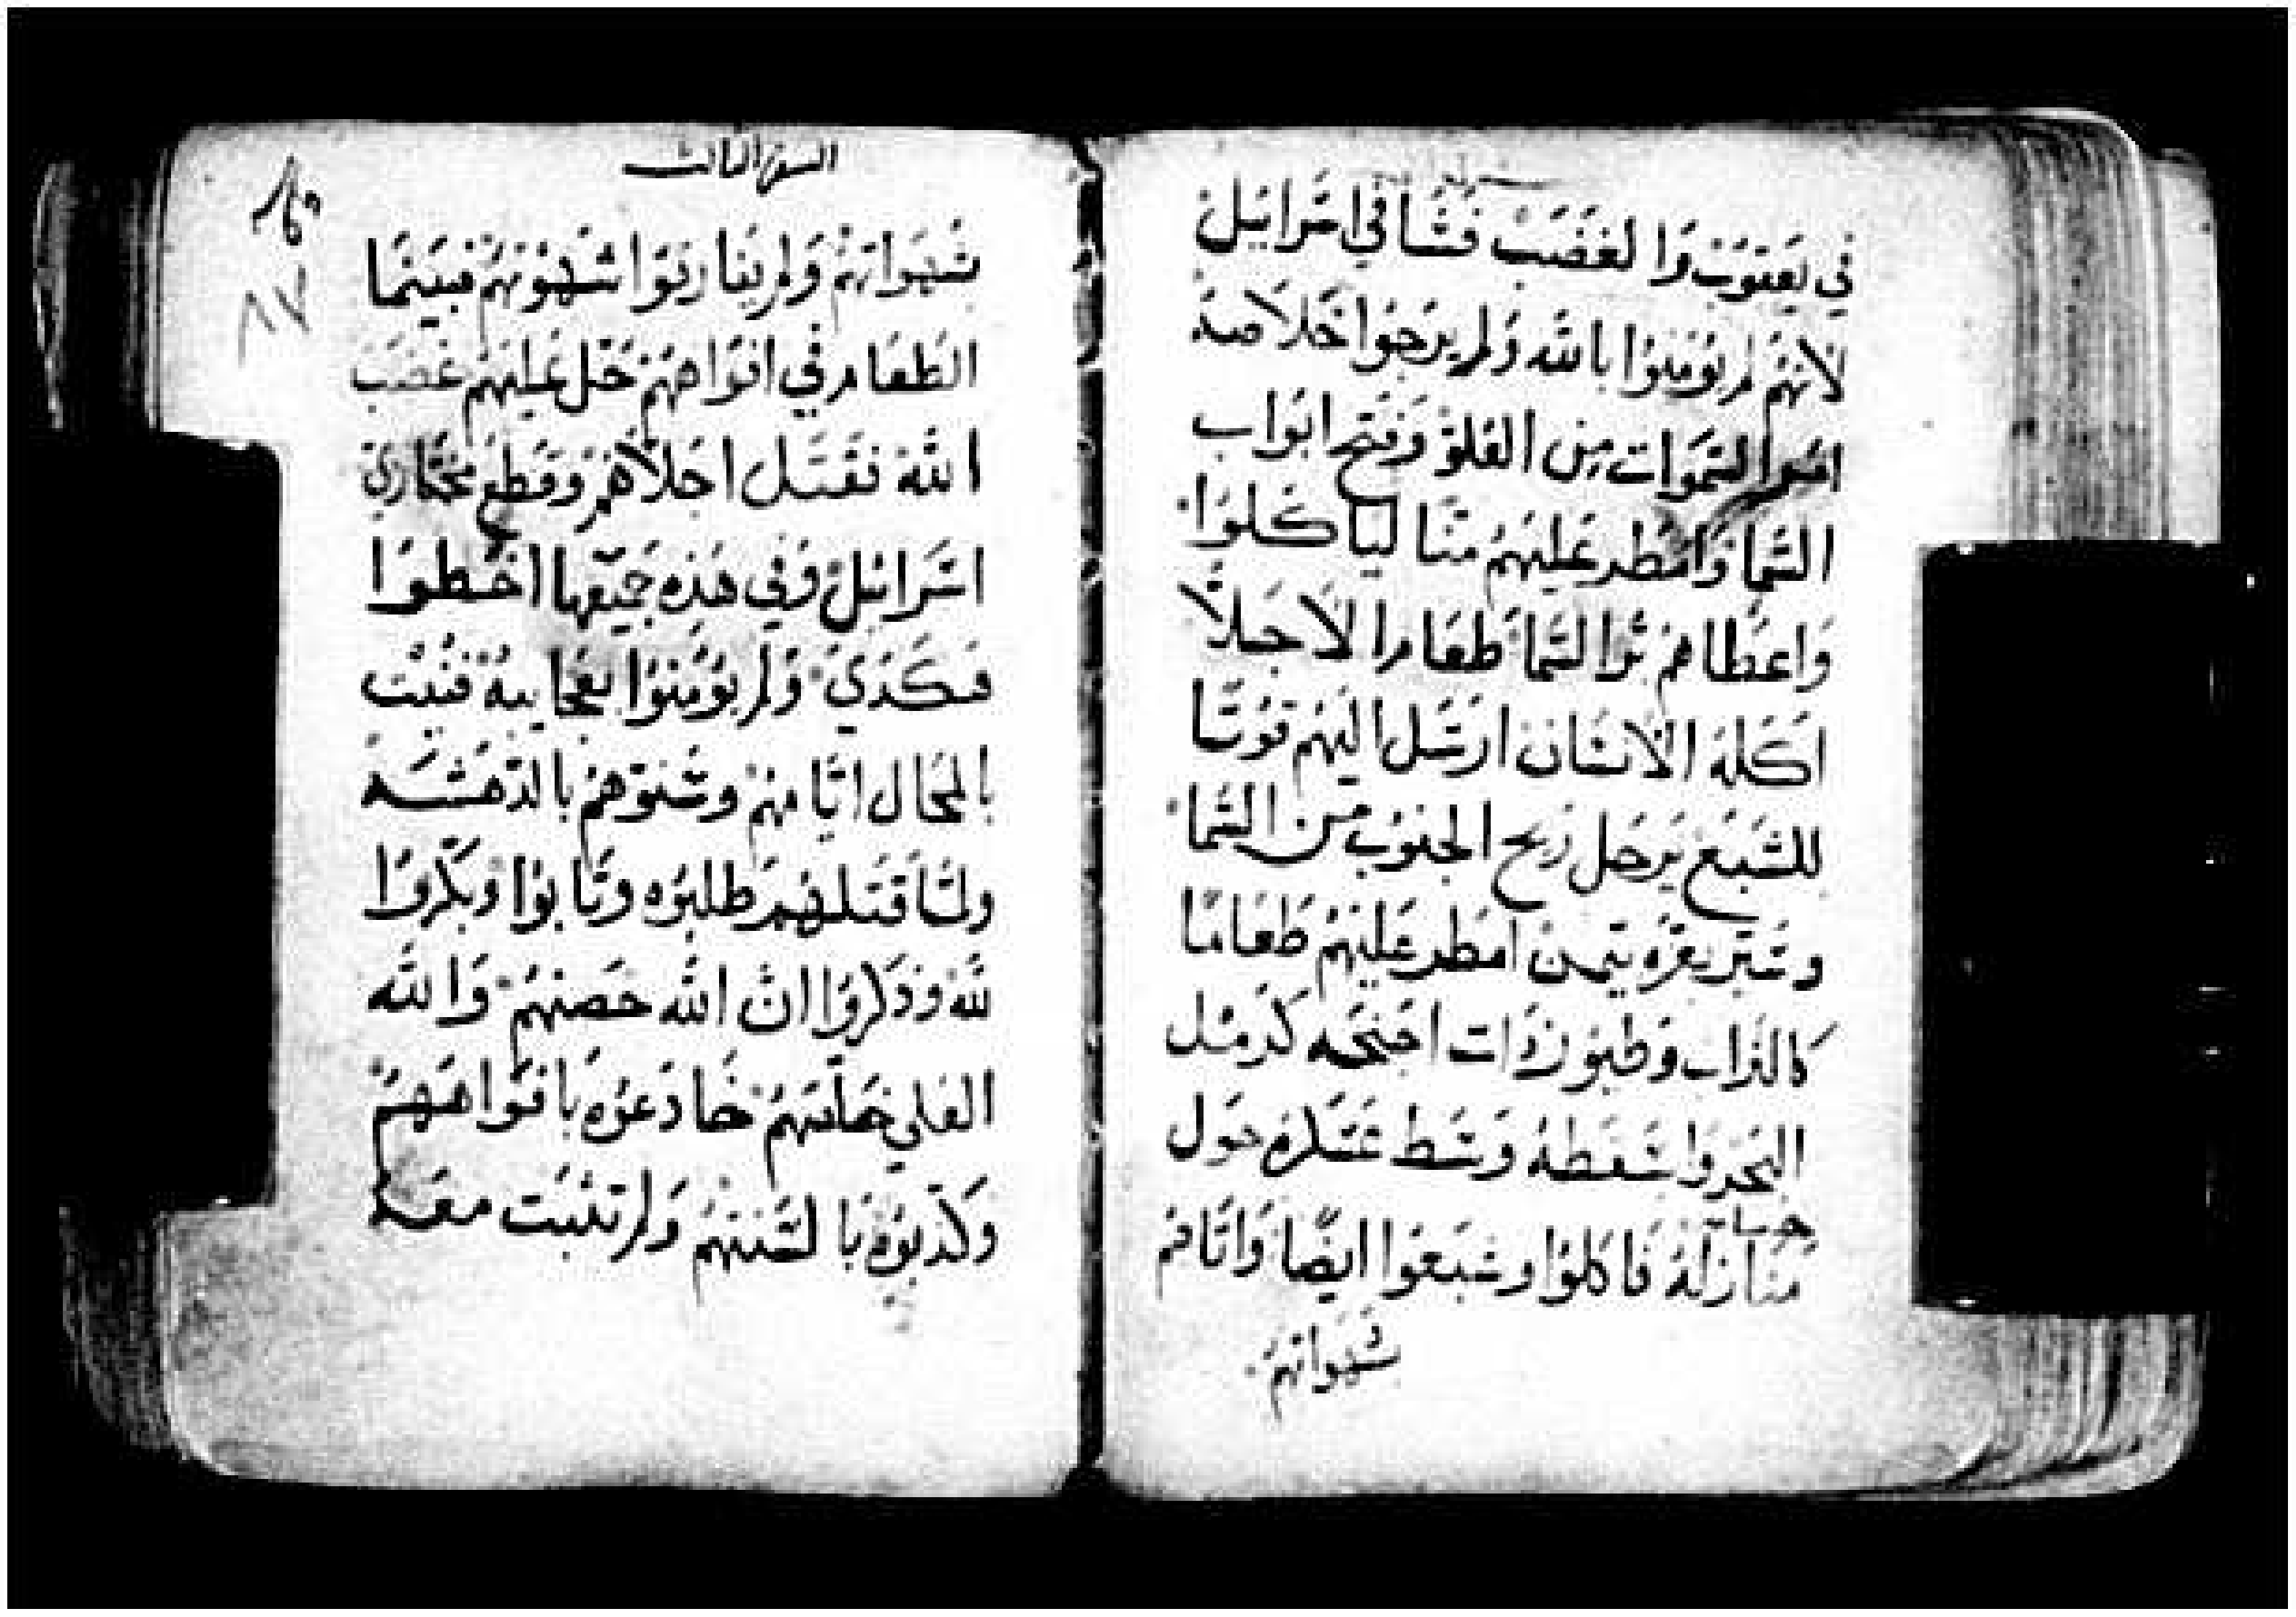 في يعقوب وَالغَضَبْ فَشَا في اسَرايَل
لانهُم لم يوُمنوُا بالله وَلم يرَجوُا خَلاصهُ
امرَ السَموَات مِن العُلوْ وَفتح ابوَاب
السَما وَامَطر عَليهمُ منَّا لياكلوَا
وَاعطاهمْ خبز السَما طعَاما الاجلاَّ
اكلهُ الانسَان ارسَل اليَهمُ قوُتًا
للشبَع يرَحل ريح الجنوُب من السَما
وسَير بقوَته تيمن امَطر عَليَهمُ طعَامًا
كالترَاب وَطيوُر ذَات اجنحَه كَرمَل
البحَر وَاسَقطهُ وَسَط عسَكرهْ حوَل
منَازلهُ فاكلوُا وشبعَوا ايضًا وَاتَاهُم
شهوَاتهمُ
السفر الثالث
شهَوَاتهمْ وَلم يفَارقوَا شهوْتهُم فبينَمَا
الطعَام في افوَاههمْ حَل عَليهَم غضَبَ
اللهْ فقتَل اجَلاَّهُم وقطعَ مختَاري
اسَرايُلْ وَفي هَذه جَميَعها اخَطوَا
هَكذي وَلم يوُمنوُا بعجَايبهُ ففنيت
بالمحَال ايَّامهمْ وسَنوَهمُ بالدهَشَه
ولمَّا قتَلهم طلبوُه وتَابوُا وَبكرَوا
للهْ وذكرَوا انْ الله حَصنهمُ وَالله
العَلي مخلصَهمُ خَادعَوُه بَافوَاههَمْ
وكَذبوُه بَالسَنتهمُ وَلم تثبَت معَه